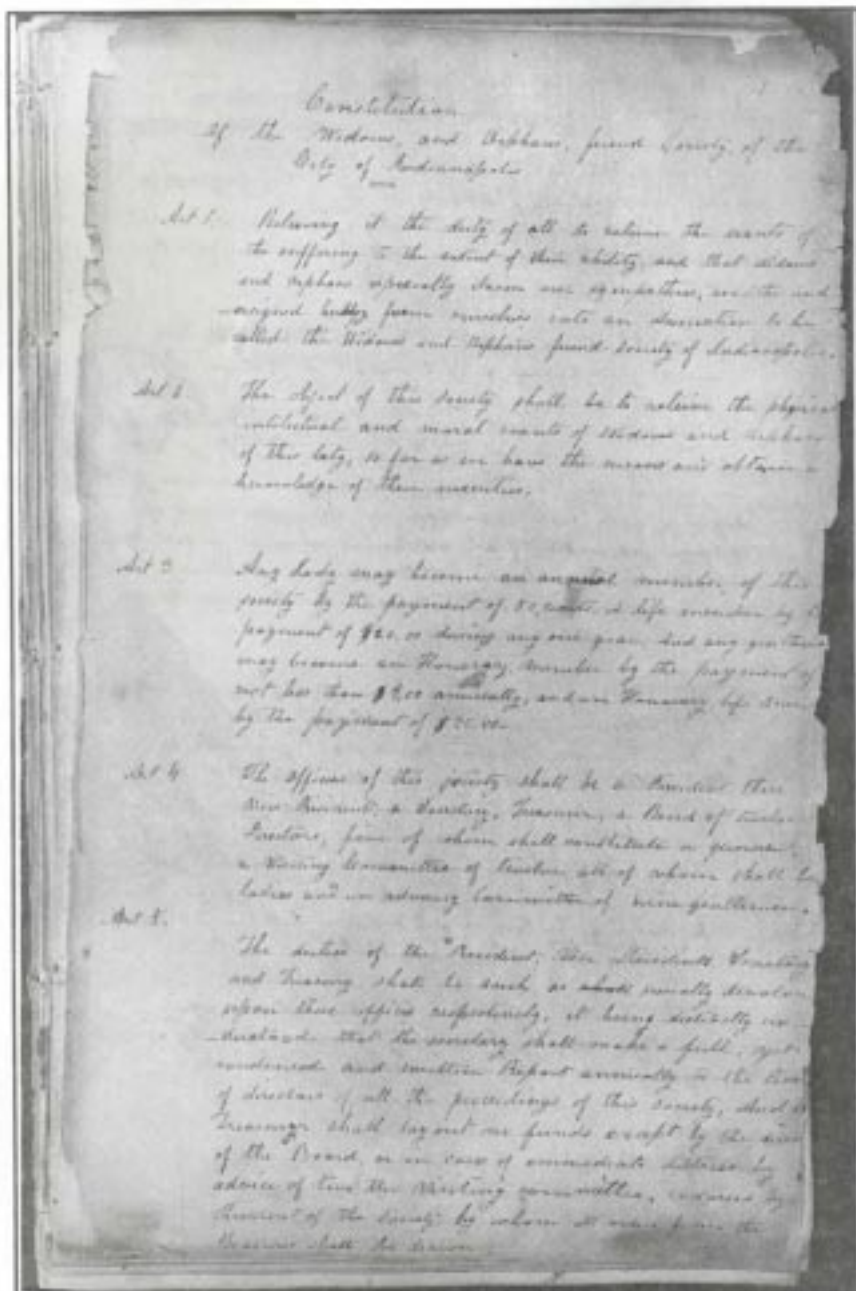 Constitution
Of the Widows, and Orphans, friend Society, of the
City of Indianapolis
Art 1. Believing it the duty of all to relieve the wants of
the suffering to the extent of their ability, and that widows
and orphans especially claim our sympathies, we the und
ersigned hereby form ourselves into an association to be
called the Widows and Orphans friend society of Indianapolis.
Art 2 The object of this society shall be to relieve the physical
intellectual and moral wants of widows and orphans
of this City, so far as we have the means and obtain a
knowledge of their necessities.
Art 3 Any Lady may become an annual member of this
society by the payment of 50, cents, a life member by
payment of $20.00 during any one year. And any gentleman
may become an Honorary member by the payment of
not less than annually, and an Honorary life
by the payment of
Art 4 The officers of this society shall be a President three
Vice President, a Secretary, Treasurer, a Board of twelve
Directors, five of whom shall constitute a quorum,
a Visiting Committee of twelve all of whom shall be
ladies and an advisory Committee of nine gentlemen.
Art 5.
The duties of the President, Vice Presidents Secretary
and shall be such as shall usually devolve
upon those offices respectively, it being distinctly un
derstood that the secretary shall make a full, yet
condensed and written Report annually to the
of directors of all the proceedings of this society, And
Treasurer shall layout no funds except by the
of the Board, or in case of immediate distress by
advice of two the Visiting committee,
of the Society by whom all the
shall be drawn